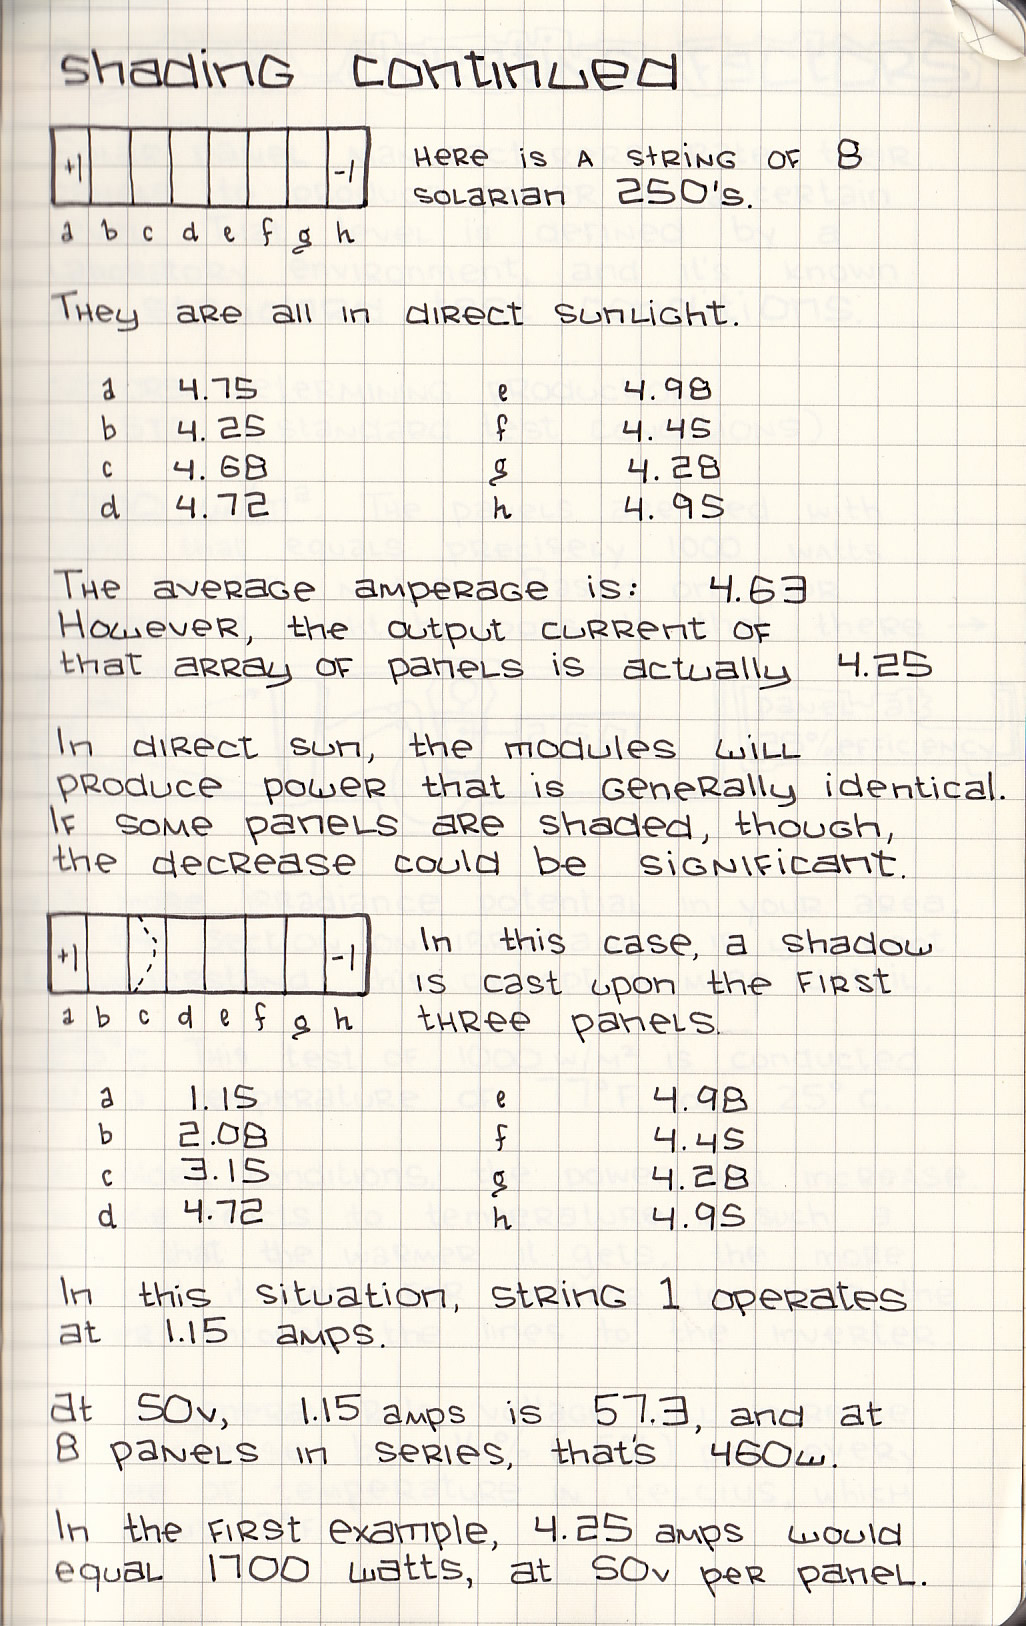 Shading continued
+1 -1
a b c d e f g h
Here is a string of 8
solarian 250's.
They are all in direct sunlight.
a 4.75 e 4.98
b 4.25 f 4.45
c 4.68 g 4.28
d 4.72 h 4.95
The average amperage is: 4.63
However, the output current of
that array of panels is actually 4.25
In direct sun, the modules will
produce power that is generally identical.
If some panels are shaded, though,
the decrease could be significant.
+1 -1
a b c d e f g h
In this case, a shadow
is cast upon the first
three panels.
a 1.15 e 4.98
b 2.08 f 4.45
c 3.15 g 4.28
d 4.72 h 4.95
In this situation, string 1 operates
at 1.15 amps.
at 50v, 1.15 amps is 57.3, and at
8 panels in series, that's 460w.
In the first example, 4.25 amps would
equal 1700 watts, at 50v per panel.